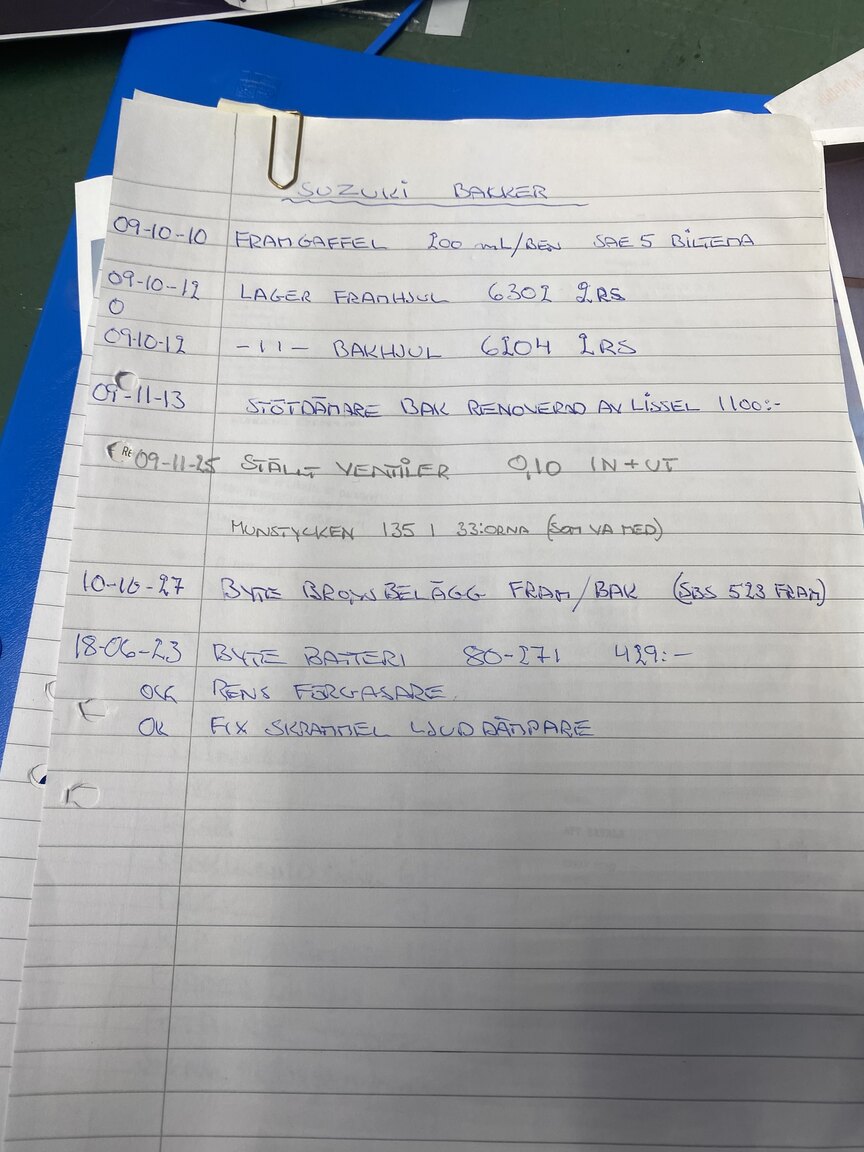 SUZUKI BAKKER
09-10-10 FRAMGAFFEL 200 mL/BEN SAE 5 BILTEMA
09-10-12 LAGER FRAMHJUL 6302 2RS
0
09-10-12 -11- BAKHJUL 6204 2RS
09-11-13 STÖTDÄMARE BAK RENOVERAD AV LISSEL 1100:-
09-11-25 STÄLLT VENTILER 0,10 IN+UT
MUNSTYCKEN 135 I 33:ORNA (SOM VA MED)
10-10-27 BYTE BROMSBELÄGG FRAM/BAK (SBS 523 FRAM)
18-06-23 BYTE BATTERI 80-271 429:-
RENS FÖRGASARE
OK FIX SKRAMMEL LJUDDÄMPARE